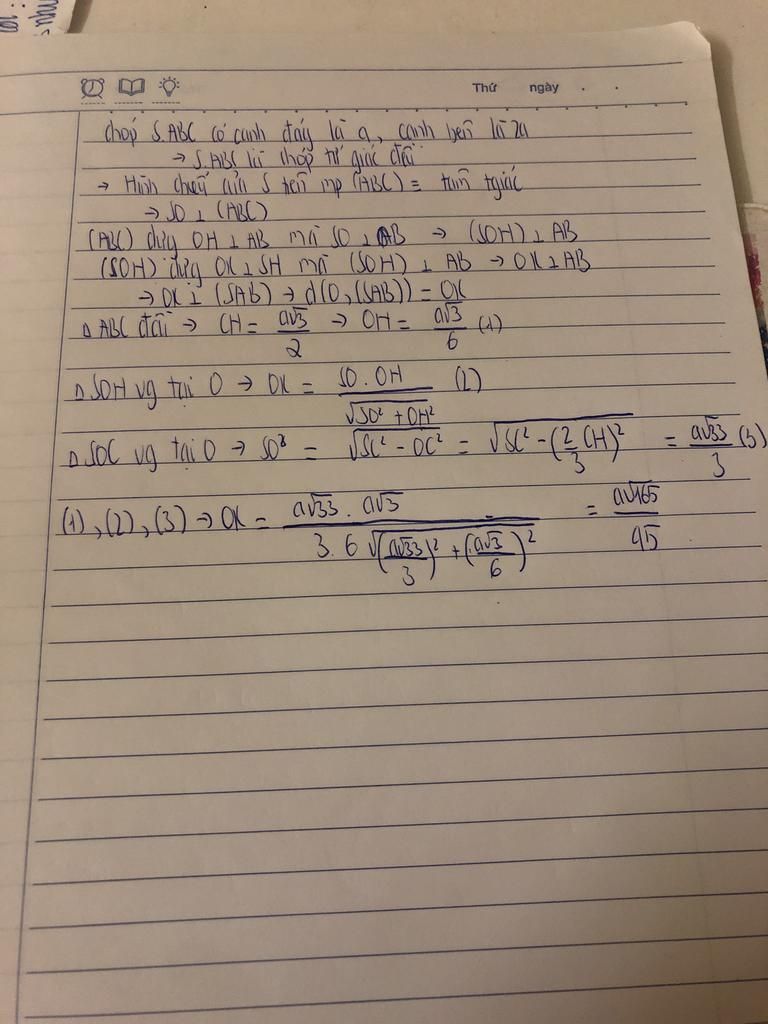 Thứ ngày . .
chóp S.ABC có cạnh đáy là a, cạnh bên là 2a
→ S.ABC là chóp tứ giác đều
→ Hình chiếu của S trên mp (ABC) ≡ tâm tgiác
→ SO ⊥ (ABC)
(ABC) dựng OH ⊥ AB mà SO ⊥ AB → (SOH) ⊥ AB
(SOH) dựng OK ⊥ SH mà (SOH) ⊥ AB → OK ⊥ AB
→ OK ⊥ (SAB) → d(O,(SAB)) = OK
△ ABC đều → CH = a√3/2 → OH = a√3/6 (1)
△ SOH vg tại O → OK = SO . OH / √(SO² + OH²) (2)
△ SOC vg tại O → SO² = √(SC² - OC²) = √(SC² - (2/3 CH)²) = a√33/3 (3)
(1), (2), (3) → OK = a√33 . a√3 / 3. 6 √((a√33/3)² + (a√3/6)²) = a√165/45